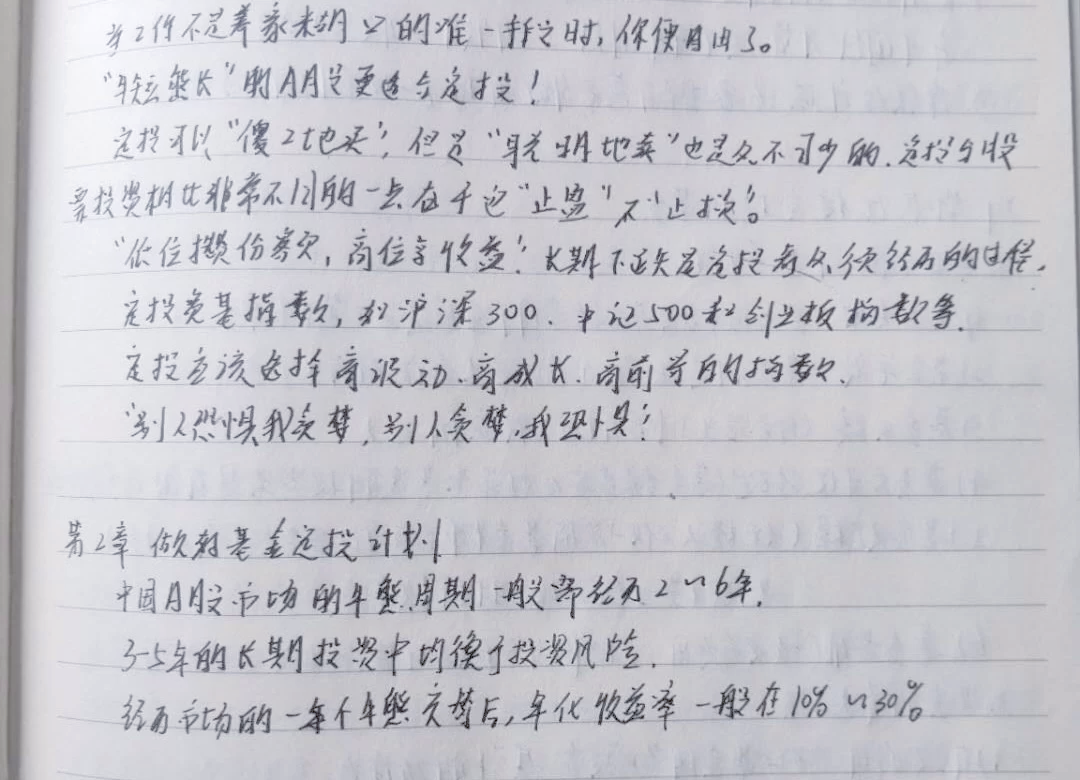 当工作不是养家糊口的唯一手段时，你便自由了。
“牛短熊长”的A股更适合定投！
定投可以“傻傻地买”，但是“聪明地卖”也是必不可少的，定投与股
票投资相比非常不同的一点在于它“止盈”不“止损”。
“低位攒份额，高位享收益”！长期下跌是定投者必须经历的过程。
定投宽基指数，如沪深300、中证500和创业板指数等。
定投应该选择高波动、高成长、高前景的指数。
“别人恐惧我贪婪，别人贪婪，我恐惧”！
第2章 做好基金定投计划
中国A股市场的牛熊周期一般都经历2~6年。
3-5年的长期投资中均衡了投资风险。
经历市场的一个牛熊交替后，年化收益率一般在10%~30%